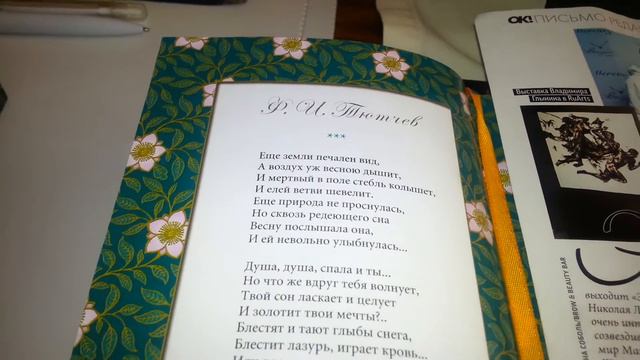 Ф. И. Тютчев
***
Еще земли печален вид,
А воздух уж весною дышит,
И мертвый в поле стебль колышет,
И елей ветви шевелит.
Еще природа не проснулась,
Но сквозь редеющего сна
Весну послышала она,
И ей невольно улыбнулась...
Душа, душа, спала и ты...
Но что же вдруг тебя волнует,
Твой сон ласкает и целует
И золотит твои мечты?..
Блестят и тают глыбы снега,
Блестит лазурь, играет кровь...
OK! ПИСЬМО РЕДА
Выставка Владимира
Глынина в RuArts
выходит
Николая Л
очень инн
созвездие
мир Ма
НА СОБОЛЬ/BROW & BEAUTY BAR